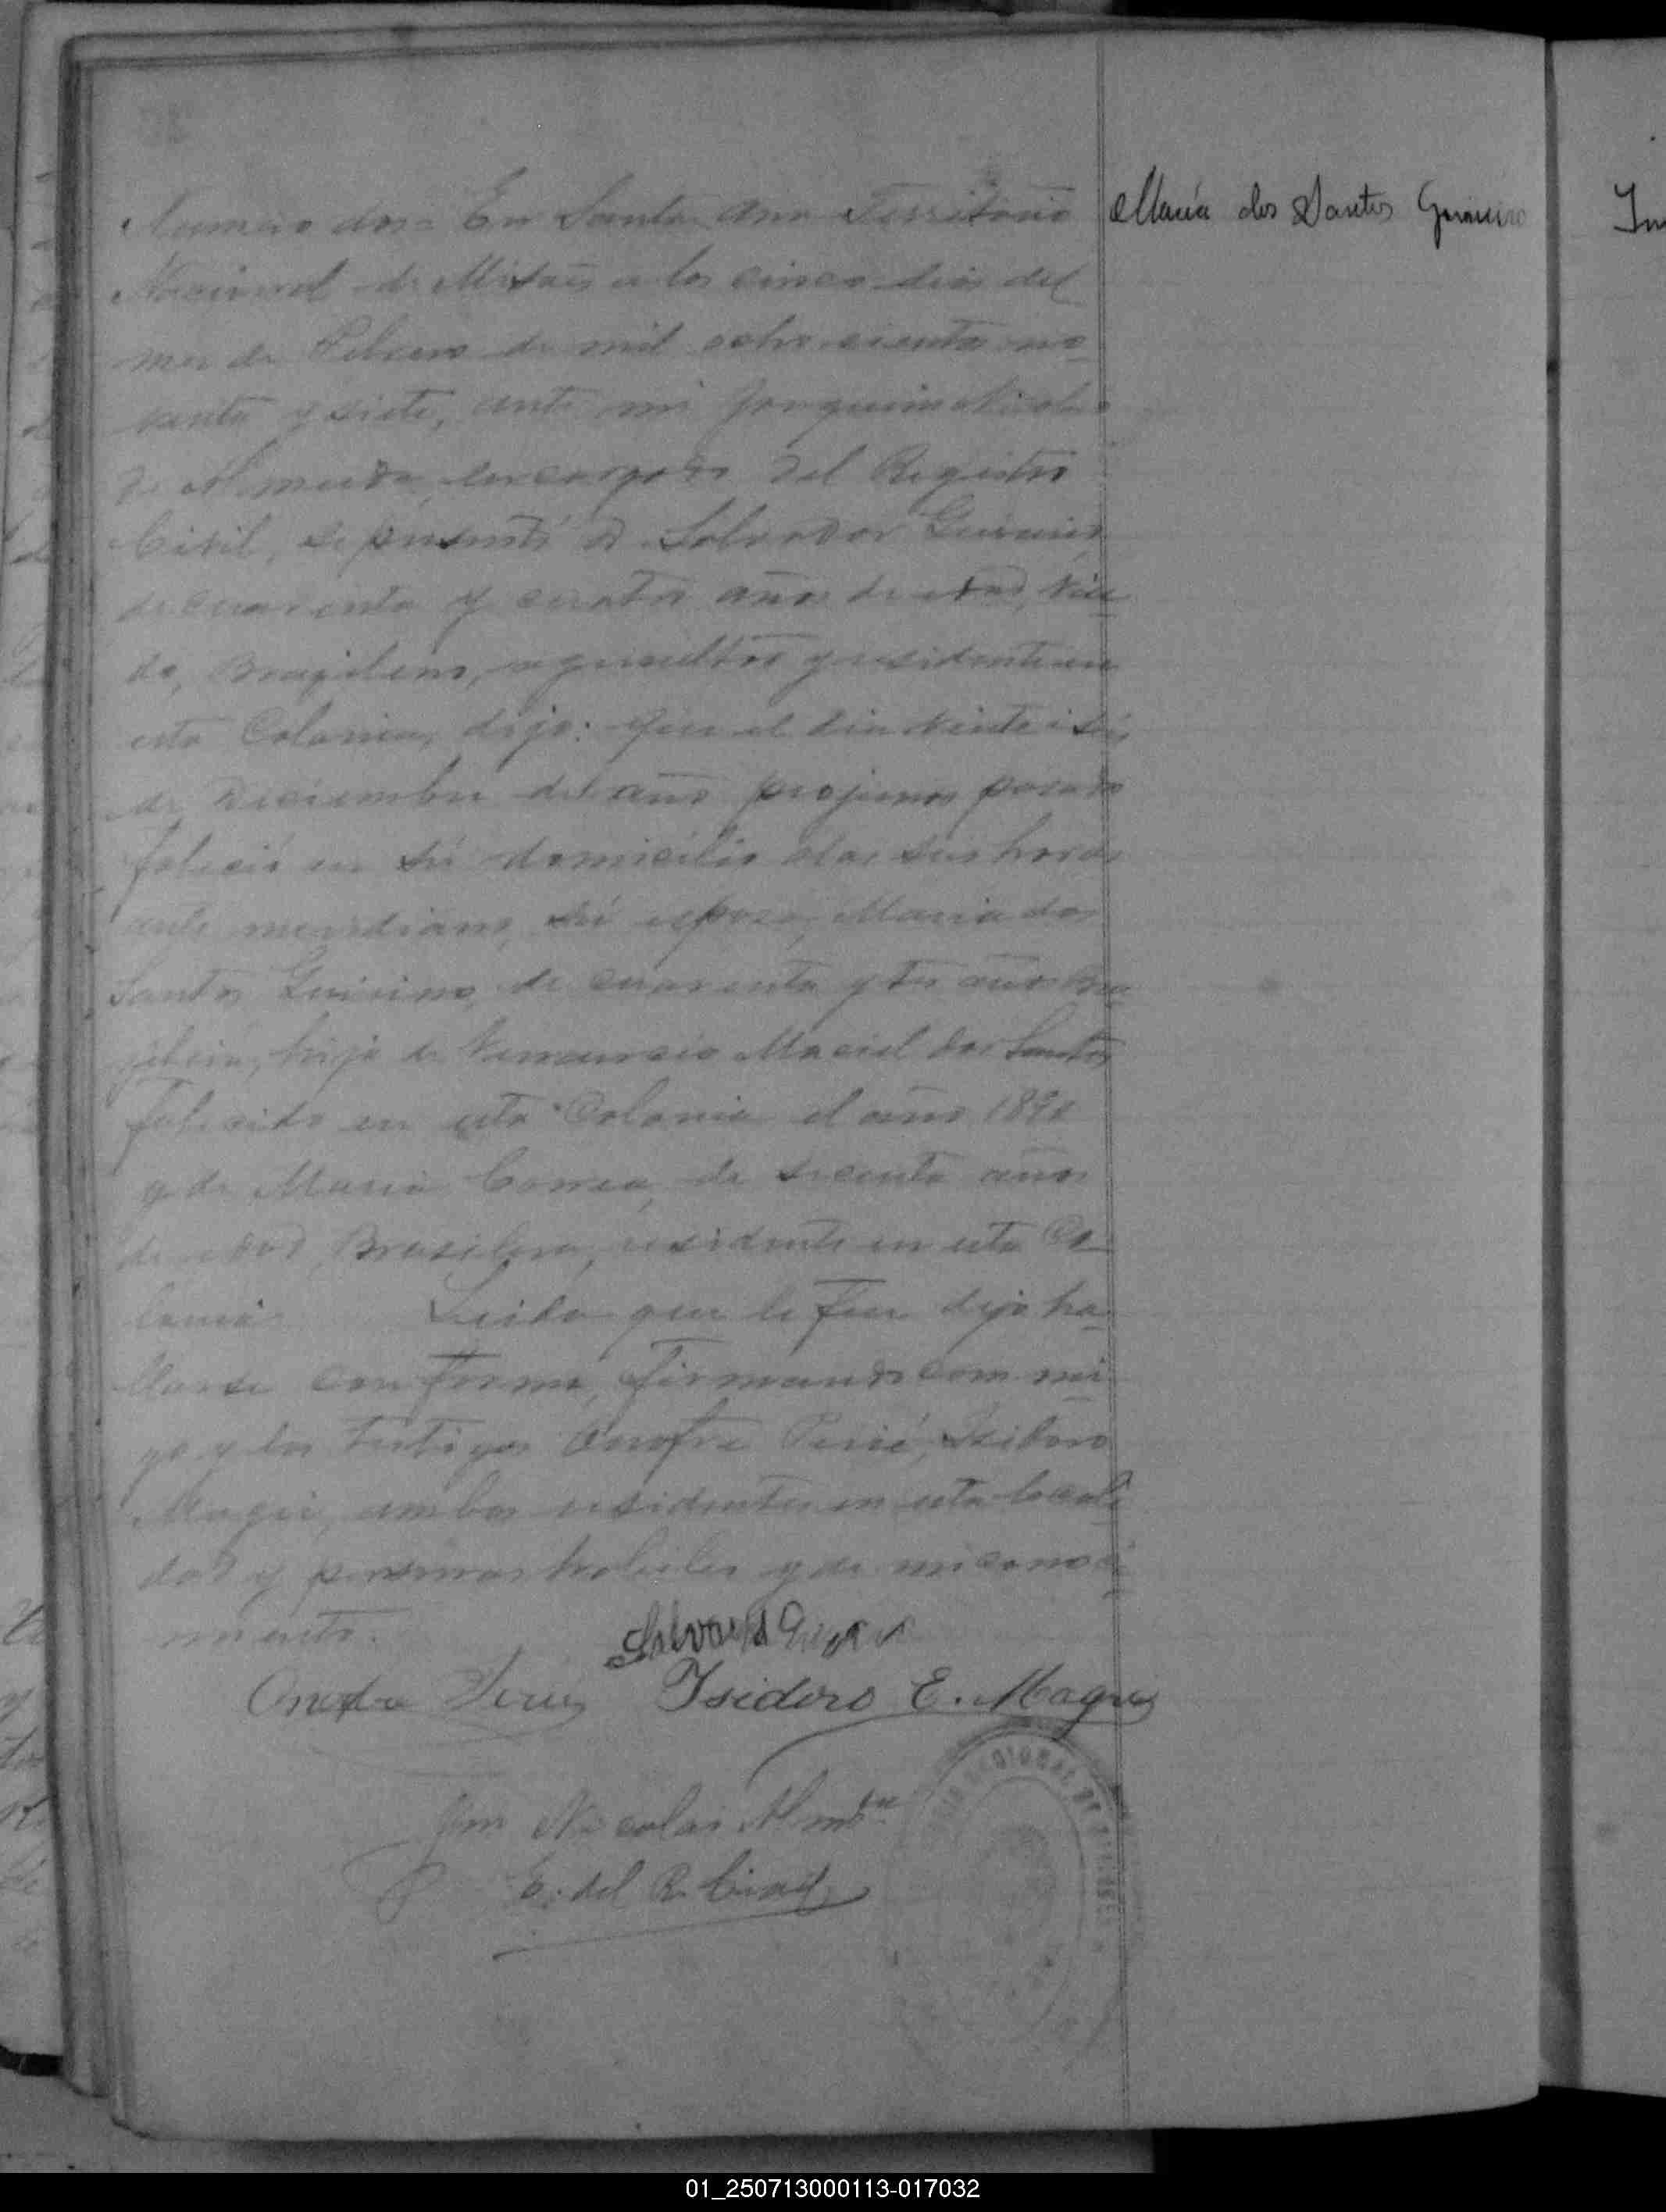 Numero dos= En Santa Ana Territorio
Nacional de Misiones a los cinco dias del
mes de Febrero de mil ocho cientos no-
venta y siete, ante mi Joaquim Nicolas
de Almeida, encargado del Registro
Civil, se presentó D. Salvador
de cuarenta y cuatro años de edad, Viu-
do, Brazilero, agricultor y residente en
esta Colonia, dijo: Que el dia
de Diciembre del año projimo pasado
falició en sú domicilio a las seis horas
ante meridiano, sú esposa, Maria dos
Santos de cuarenta y tres años Bra-
zilera, hija de Maciel dos Santos
falicido en esta Colonia el año
y de Maria Correa, de años
de edad, Brasilera, residente en esta Co-
lonia. Leida que le fue dijo ha-
llarse conforme, firmando con mi-
go y los testigos Onofre Isidoro
ambos residentes en esta locali-
dad y personas habiles y de mi conoci-
miento.
Onofre Isidoro E.
Jm Nicolas Almda
E. del R. Civil
Maria dos Santos
01_250713000113-017032